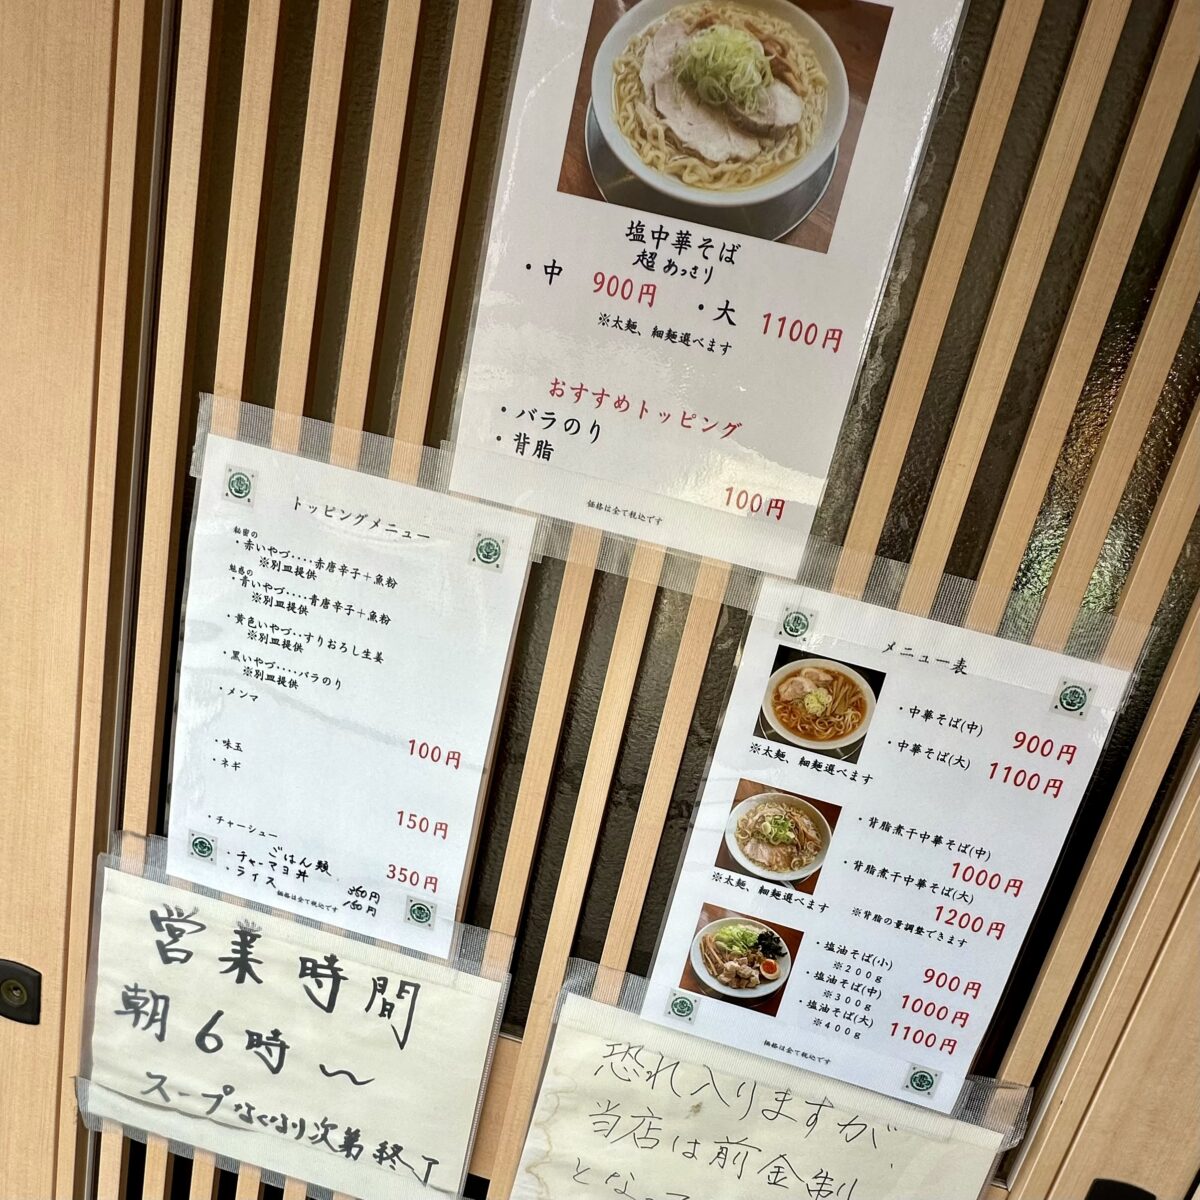 塩中華そば
超あっさり
・中 900円 ・大 1100円
※太麺、細麺選べます
おすすめトッピング
・バラのり
・背脂
100円
価格は全て税込です
トッピングメニュー
秘密の
・赤いやづ‥‥赤唐辛子＋魚粉
※別皿提供
魅惑の
・青いやづ‥‥青唐辛子＋魚粉
※別皿提供
・黄色いやづ‥すりおろし生姜
※別皿提供
・黒いやづ‥‥バラのり
※別皿提供
・メンマ
100円
・味玉
・ネギ
150円
・チャーシュー
350円
ごはん類
・チャーマヨ丼 350円
・ライス 150円
価格は全て税込です
メニュー表
・中華そば(中) 900円
・中華そば(大) 1100円
※太麺、細麺選べます
・背脂煮干中華そば(中)
1000円
・背脂煮干中華そば(大)
1200円
※太麺、細麺選べます
※背脂の量調整できます
・塩油そば(小) 900円
※200g
・塩油そば(中) 1000円
※300g
・塩油そば(大) 1100円
※400g
価格は全て税込です
営業時間
朝6時〜
スープなくなり次第終了
恐れ入りますが、
当店は前金制
となって